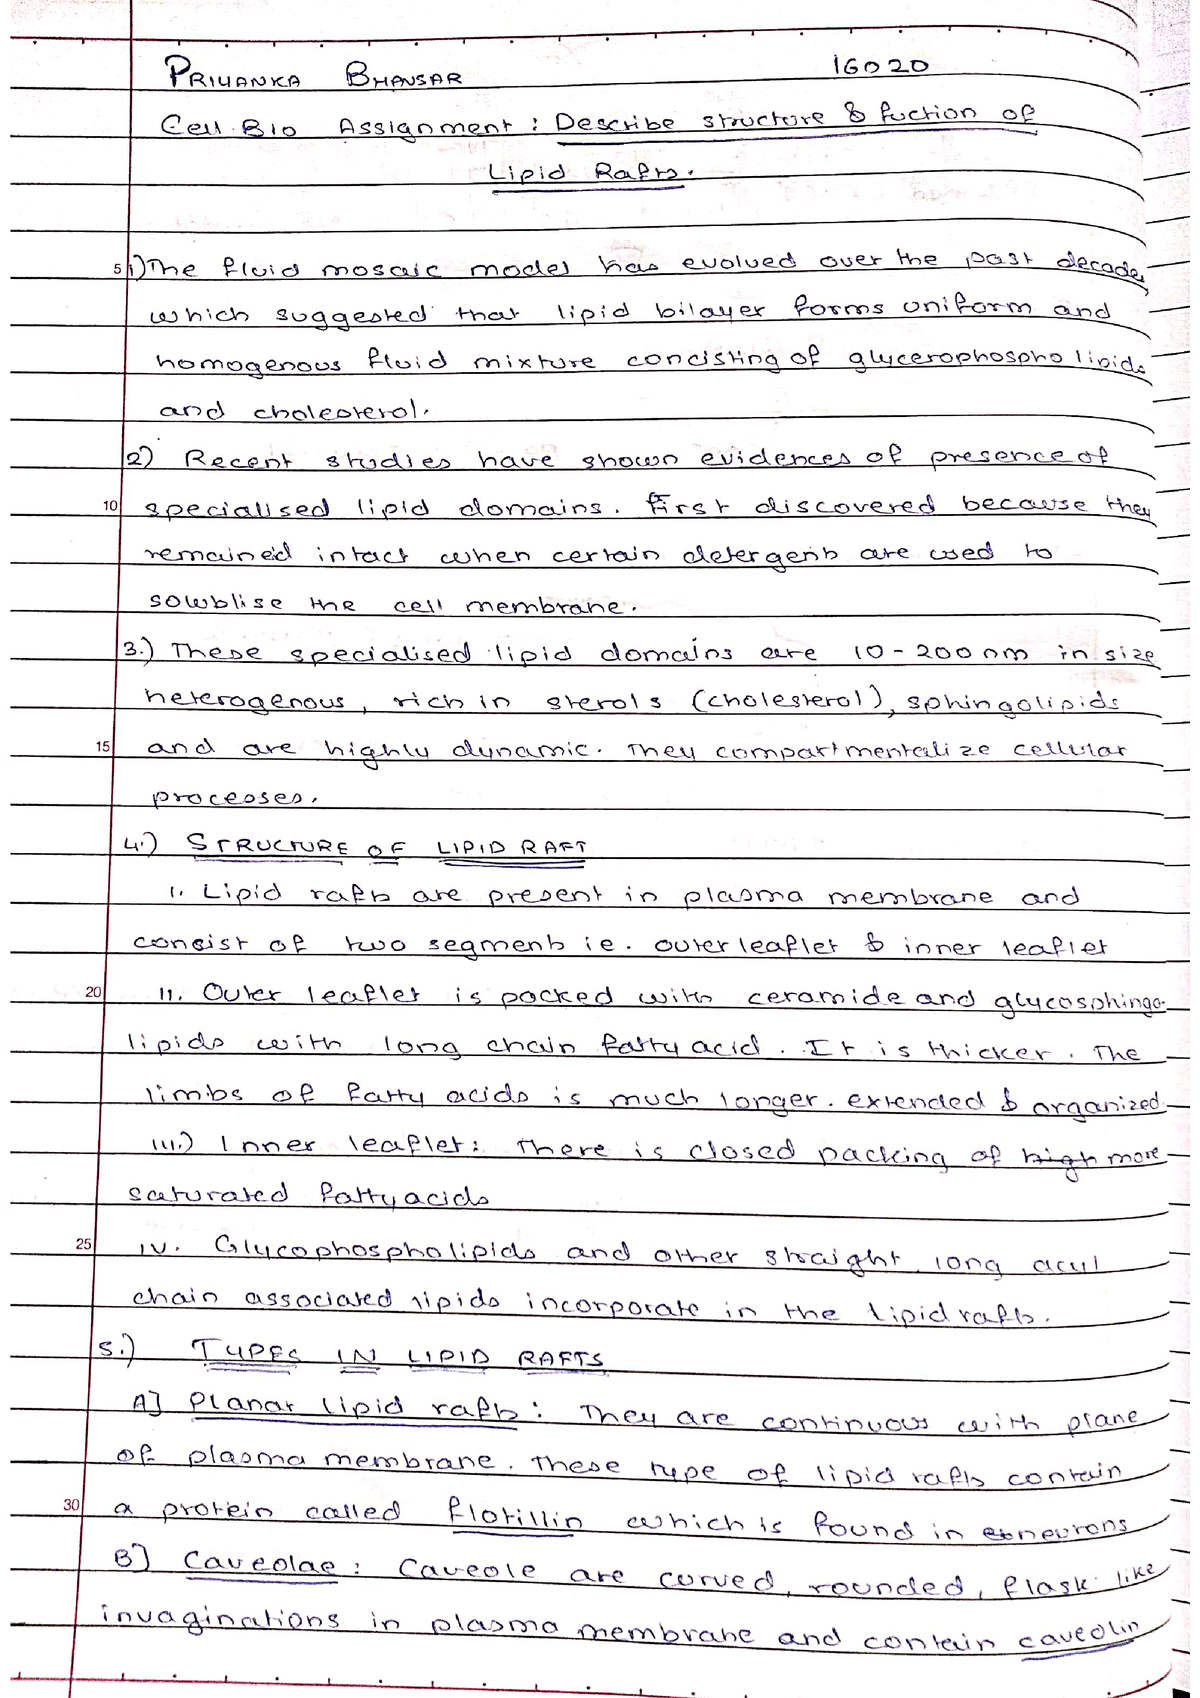 PRIYANKA BHANSAR 16020
Cell Bio Assignment : Describe structure & fuction of
Lipid Rafts.
5 1) The fluid mosaic model has evolved over the past decade,
which suggested that lipid bilayer forms uniform and
homogenous fluid mixture concisting of glycerophospholipids
and cholesterol.
2) Recent studies have shown evidences of presence of
10 specialised lipid domains. First discovered because they
remained intact when certain detergents are used to
solublise the cell membrane.
3.) These specialised lipid domains are 10-200nm in size
heterogenous, rich in sterols (cholesterol), sphingolipids
15 and are highly dynamic. They compartmentalize cellular
processes.
4.) STRUCTURE OF LIPID RAFT
i. Lipid rafts are present in plasma membrane and
consist of two segments ie. outer leaflet & inner leaflet
20 ii. Outer leaflet is packed with ceramide and glycosphingo-
lipids with long chain fatty acid. It is thicker. The
limbs of fatty acids is much longer. extended & organized.
iii.) Inner leaflet: There is closed packing of high more
saturated fatty acids
25 iv. Glycophospholipids and other straight, long acyl
chain associated lipids incorporate in the lipid rafts.
5.) TYPES IN LIPID RAFTS
A] Planar lipid rafts: They are continuous with plane
of plasma membrane. These type of lipid rafts contain
30 a protein called flotillin which is found in neurons
B] Caveolae : Caveole are curved, rounded, flask like
invaginations in plasma membrane and contain caveolin